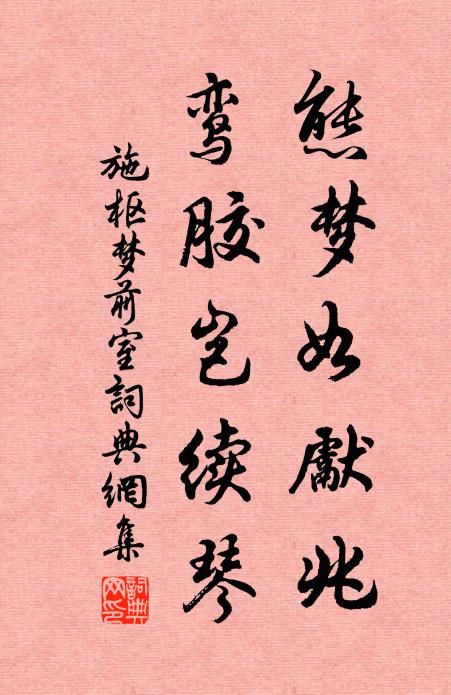 熊梦如獻兆
鸾胶岂续琴
施枢梦前室詞典網集
詞典網印